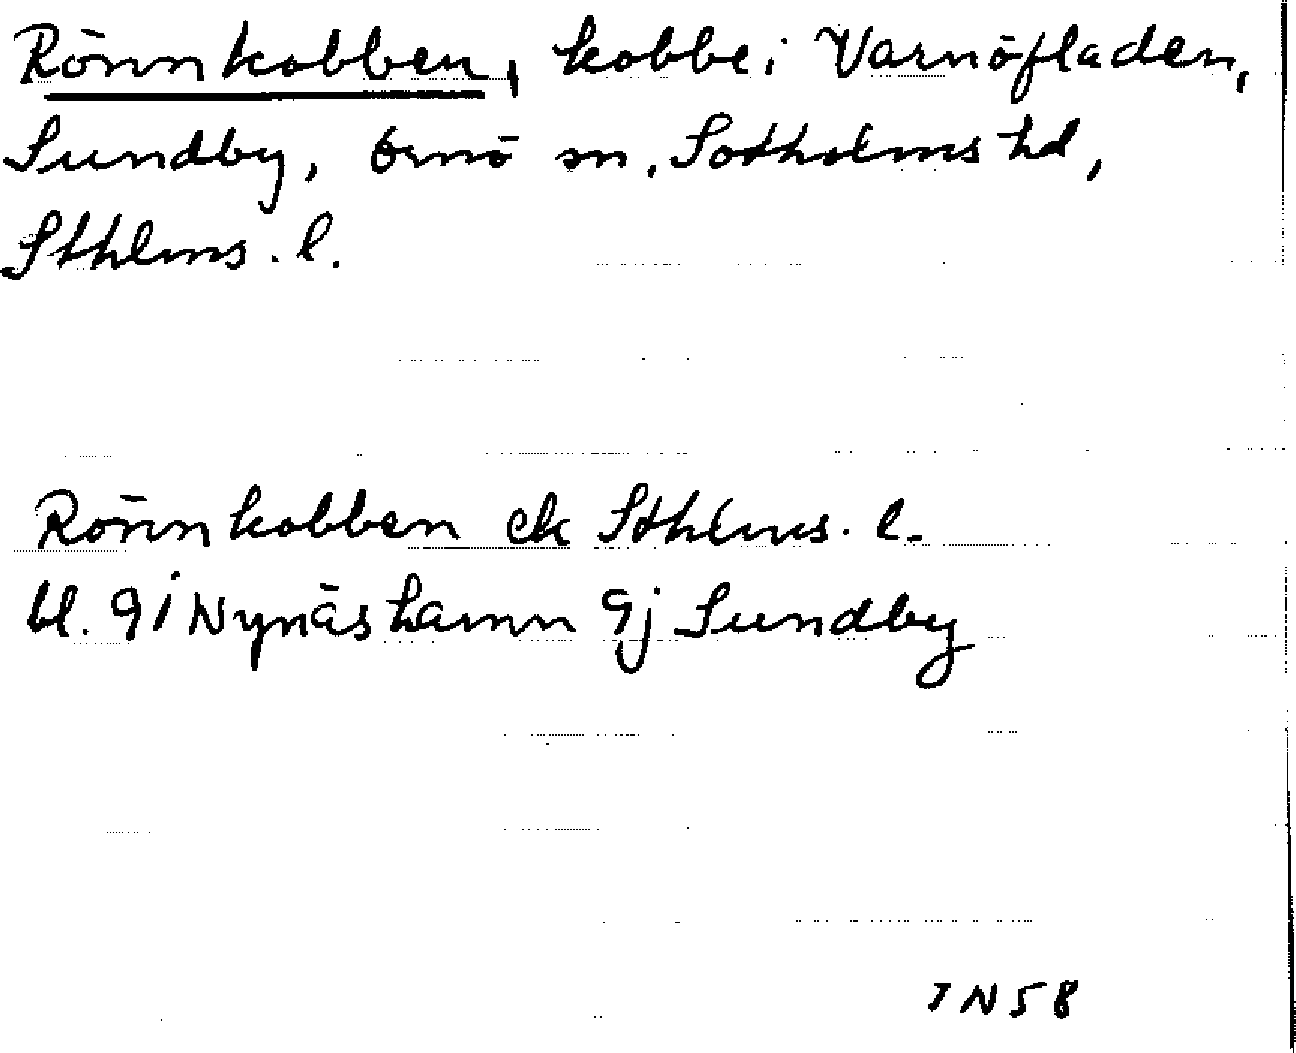 Rönnkobben, kobbe i Varnöfladen,
Sundby, Ornö sn, Sotholms hd,
Sthlms. l.
Rönnkobben ek Sthlms. l.
bl. 9i Nynäshamn 9j Sundby
JN58